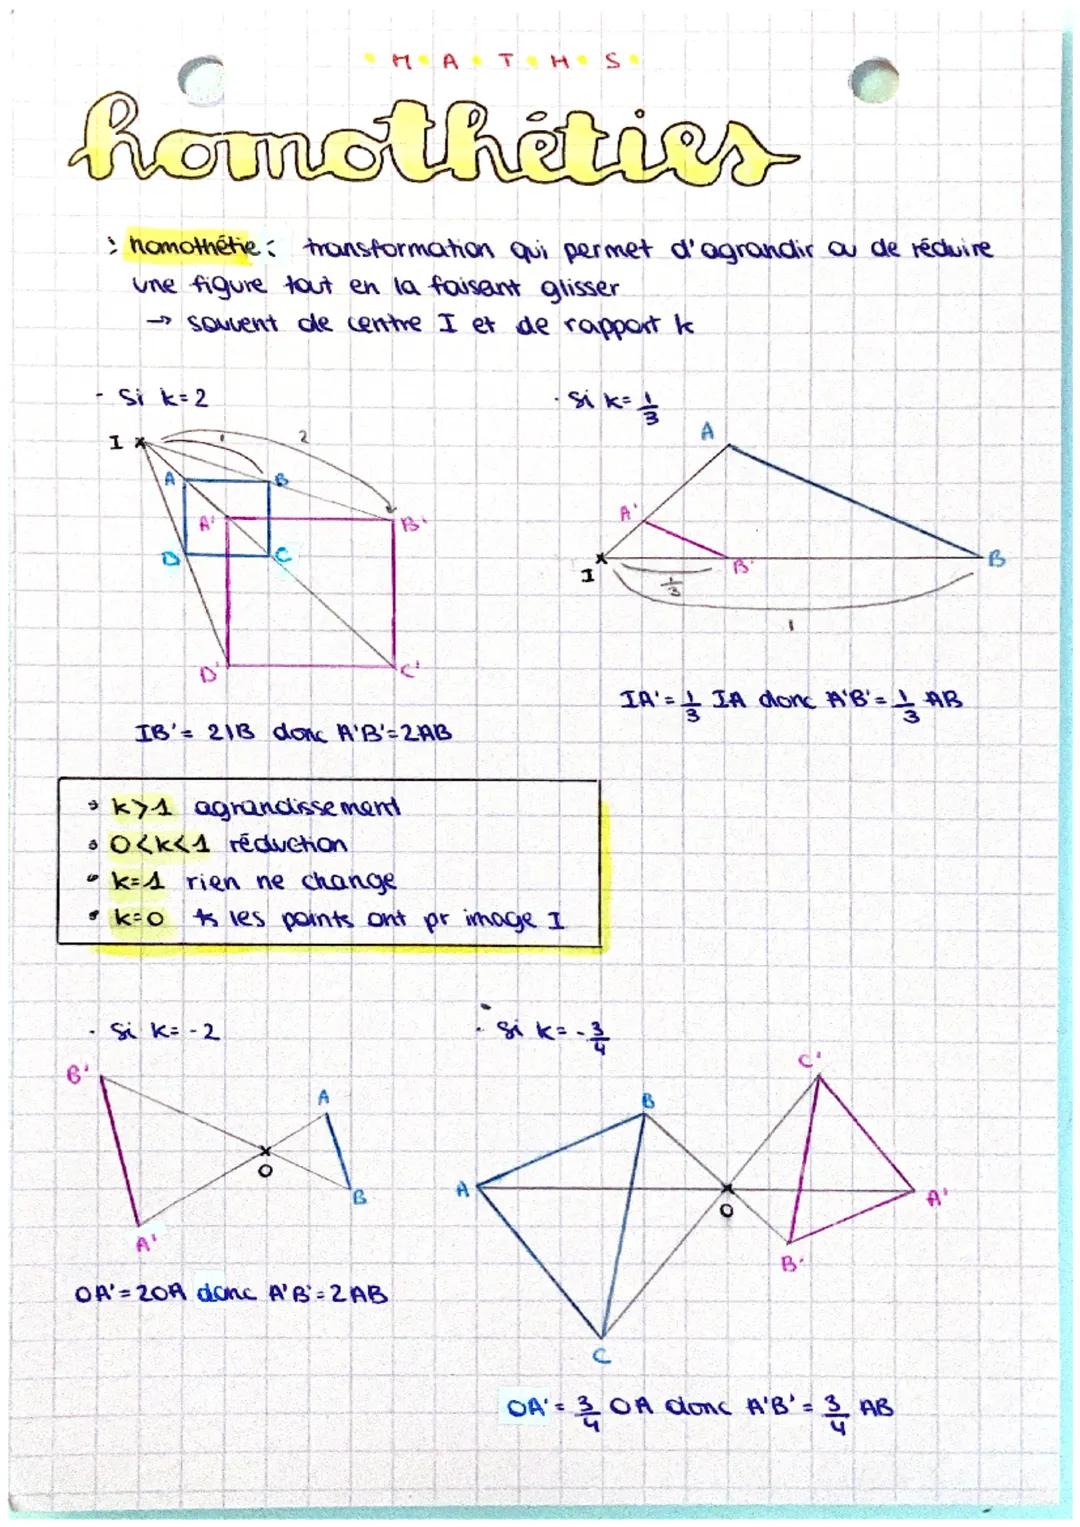 M A T H S
homothéties
homothétie : transformation qui permet d'agrandir ou de réduire
une figure tout en la faisant glisser
→ souvent de centre I et de rapport k
- Si k=2
I
1
2
A
B
A'
B'
D
C
D'
C'
IB'= 2IB donc A'B'=2AB
· Si k= 1/3
A
A'
I
B'
B
1/3
1
IA'= 1/3 IA donc A'B'= 1/3 AB
k>1 agrandissement
0<k<1 réduction
k=1 rien ne change
k=0 ts les points ont pr image I
- Si k= -2
B'
A
O
B
A'
OA'=2OA donc A'B'=2AB
- Si k= - 3/4
C'
B
A
A'
O
B'
C
OA'= 3/4 OA donc A'B'= 3/4 AB